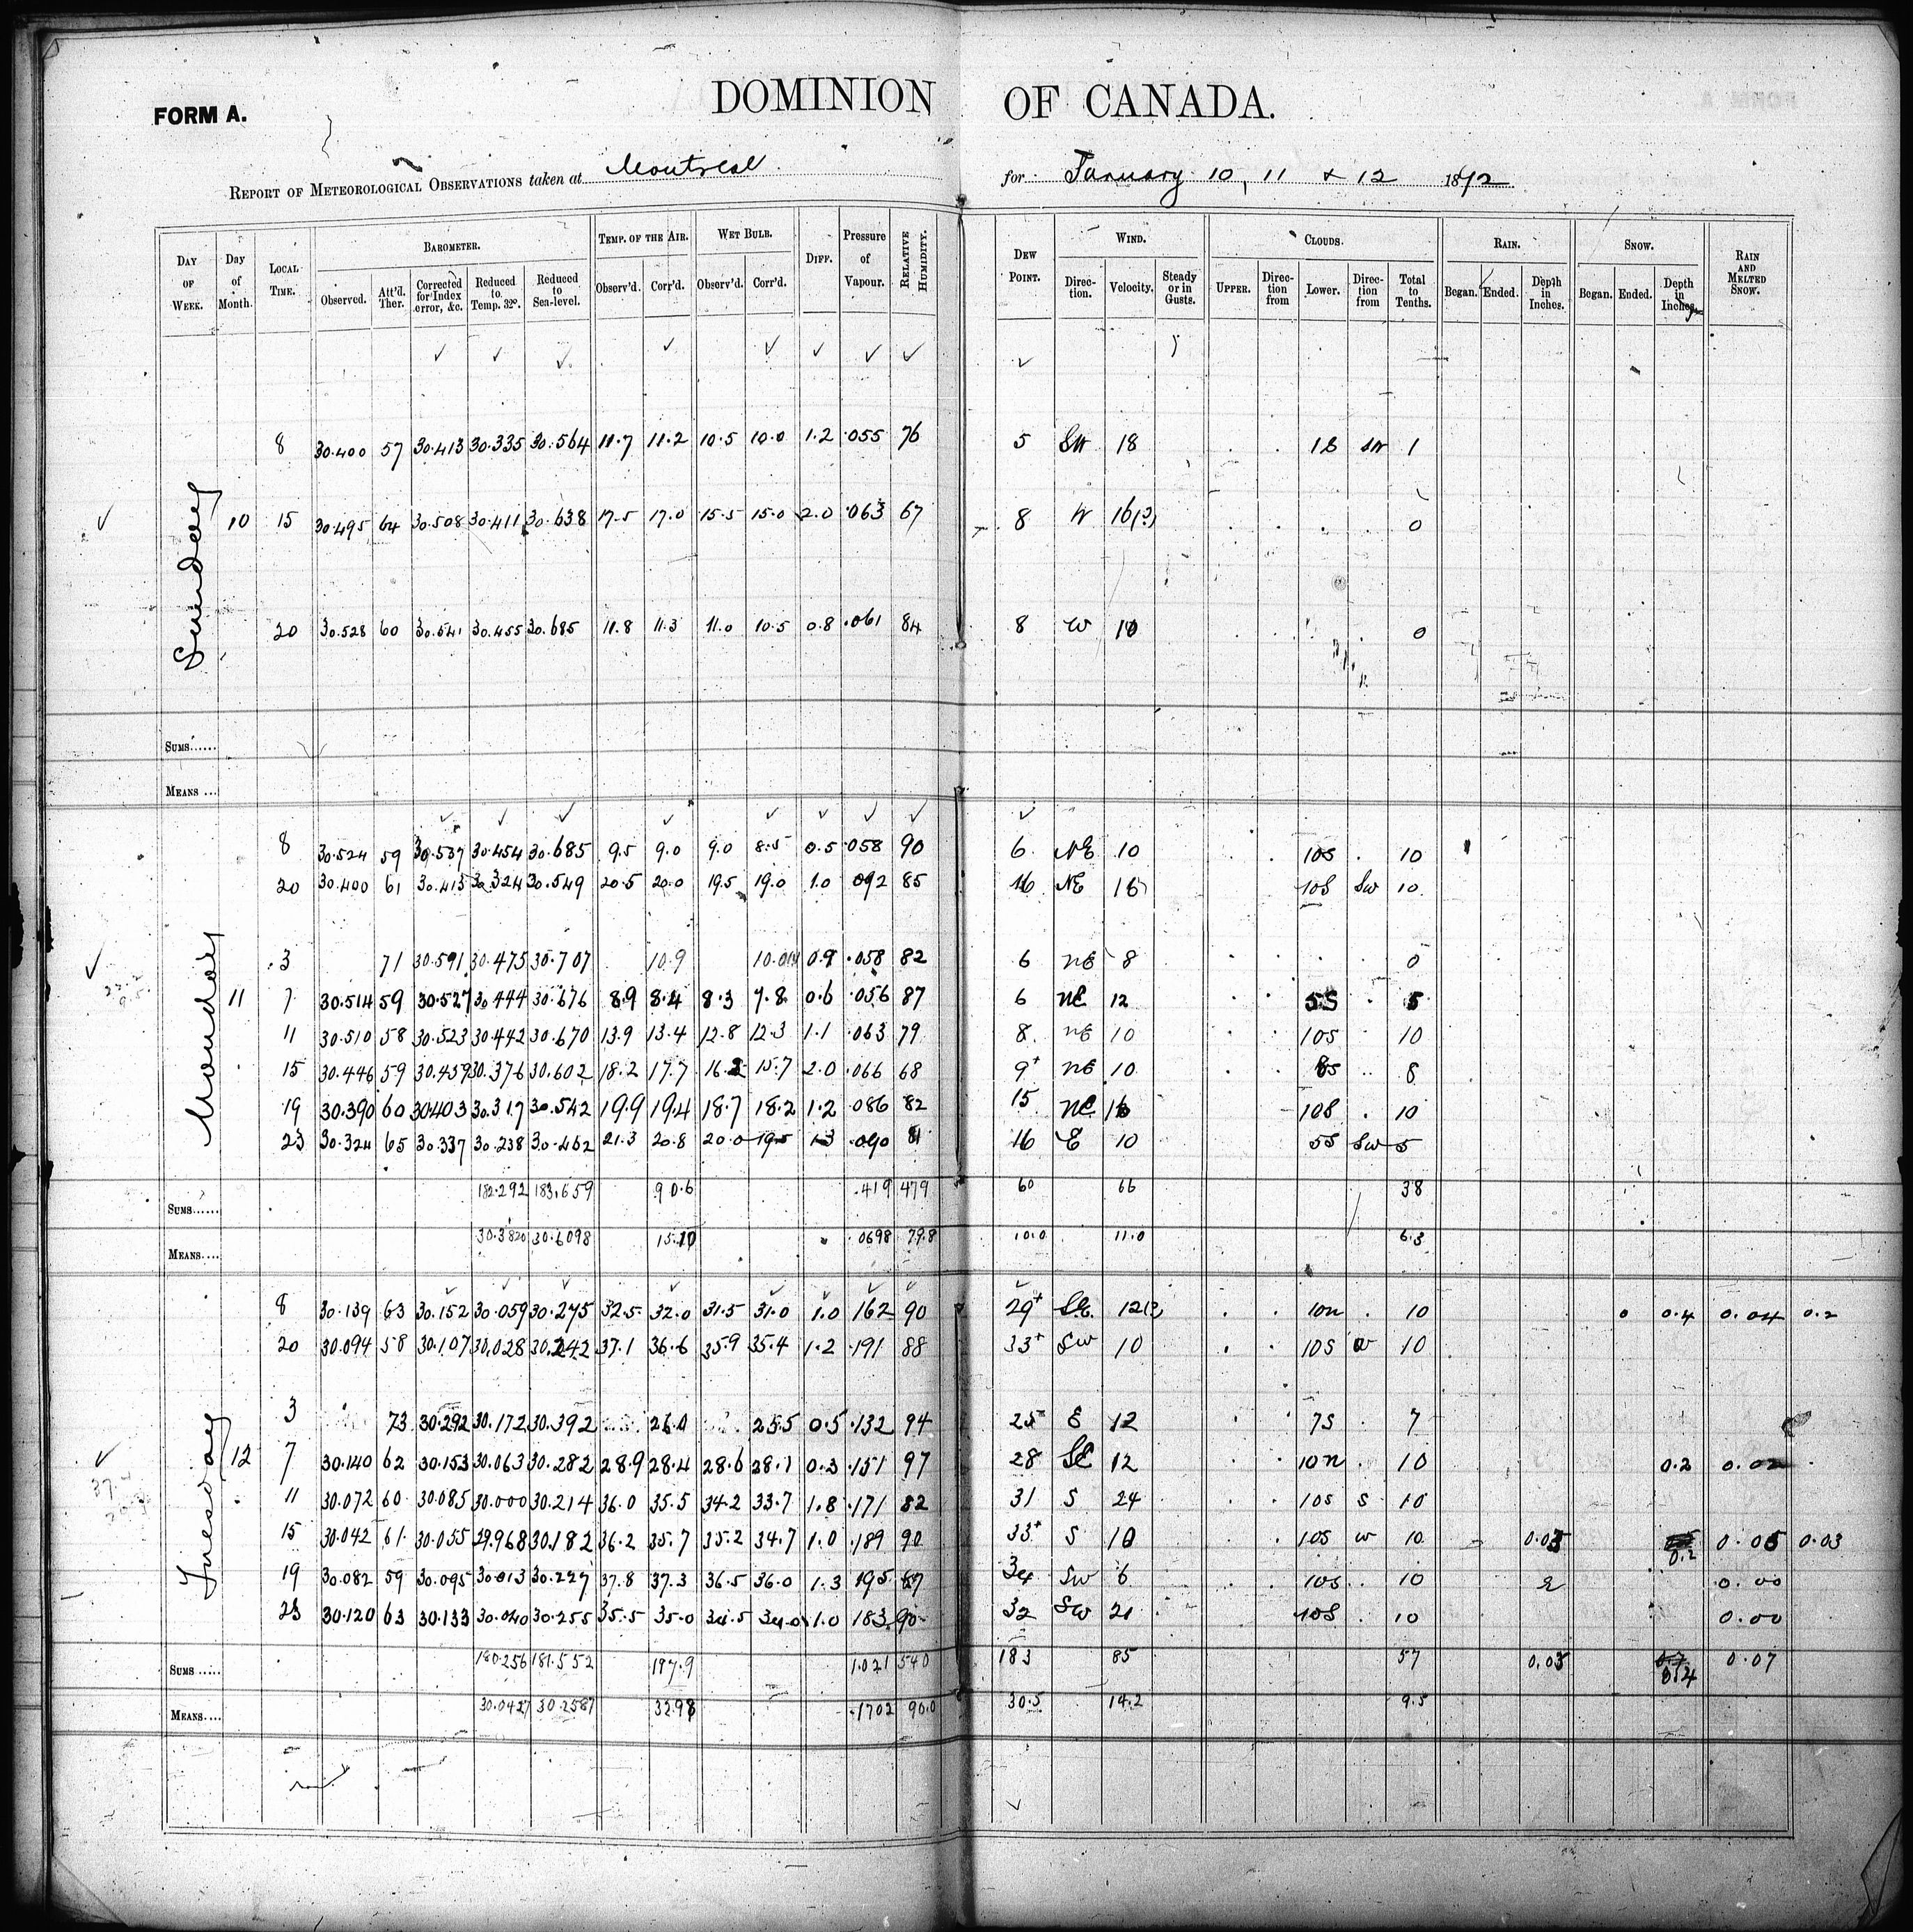 DOMINION OF CANADA.
FORM A.
REPORT OF METEOROLOGICAL OBSERVATIONS taken at Montreal for January 10, 11 & 12 1892
DAY OF WEEK. Day of Month. LOCAL TIME. BAROMETER. Observed. Att'd. Ther. Corrected for Index error, &c. Reduced to Temp. 32°. Reduced to Sea-level. TEMP. OF THE AIR. Observ'd. Corr'd. WET BULB. Observ'd. Corr'd. DIFF. Pressure of Vapour. RELATIVE HUMIDITY. DEW POINT. WIND. Direction. Velocity. Steady or in Gusts. CLOUDS. UPPER. Direction from LOWER. Direction from Total to Tenths. RAIN. Began. Ended. Depth in Inches. SNOW. Began. Ended. Depth in Inches. RAIN AND MELTED SNOW.
Sunday 10
8 30.400 57 30.413 30.335 30.564 11.7 11.2 10.5 10.0 1.2 .055 76 5 SW 18 1S SW 1
15 30.495 64 30.508 30.411 30.638 17.5 17.0 15.5 15.0 2.0 .063 67 8 W 16(?) 0
20 30.528 60 30.541 30.455 30.685 11.8 11.3 11.0 10.5 0.8 .061 84 8 W 10 0
SUMS......
MEANS ...
Monday 11
8 30.524 59 30.537 30.454 30.685 9.5 9.0 9.0 8.5 0.5 .058 90 6 NE 10 10S 10
20 30.400 61 30.413 30.324 30.549 20.5 20.0 19.5 19.0 1.0 .092 85 16 NE 16 10S SW 10
3 71 30.591 30.475 30.707 10.9 10.0 0.9 .058 82 6 NE 8 0
7 30.514 59 30.527 30.444 30.676 8.9 8.4 8.3 7.8 0.6 .056 87 6 NE 12 5S 5
11 30.510 58 30.523 30.442 30.670 13.9 13.4 12.8 12.3 1.1 .063 79 8 NE 10 10S 10
15 30.446 59 30.459 30.376 30.602 18.2 17.7 16.2 15.7 2.0 .066 68 9+ NE 10 8S 8
19 30.390 60 30.403 30.317 30.542 19.9 19.4 18.7 18.2 1.2 .086 82 15 NE 16 10S 10
23 30.324 65 30.337 30.238 30.462 21.3 20.8 20.0 19.5 1.3 .090 81 16 E 10 5S SW 5
SUMS...... 182.292 183.659 90.6 .419 479 60 66 38
MEANS.... 30.3820 30.6098 15.10 .0698 79.8 10.0 11.0 6.3
Tuesday 12
8 30.139 63 30.152 30.059 30.275 32.5 32.0 31.5 31.0 1.0 162 90 29+ SE 12(?) 10n 10 0 0.4 0.04 0.2
20 30.094 58 30.107 30.028 30.242 37.1 36.6 35.9 35.4 1.2 .191 88 33+ SW 10 10S W 10
3 73 30.292 30.172 30.392 26.0 25.5 0.5 .132 94 25 E 12 7S 7
7 30.140 62 30.153 30.063 30.282 28.9 28.4 28.6 28.1 0.3 .151 97 28 SE 12 10n 10 0.2 0.02
11 30.072 60 30.085 30.000 30.214 36.0 35.5 34.2 33.7 1.8 .171 82 31 S 24 10S S 10
15 30.042 61 30.055 29.968 30.182 36.2 35.7 35.2 34.7 1.0 .189 90 33+ S 10 10S W 10 0.03 0.2 0.05 0.03
19 30.082 59 30.095 30.013 30.227 37.8 37.3 36.5 36.0 1.3 195 87 34 SW 6 10S 10 0.00
23 30.120 63 30.133 30.040 30.255 35.5 35.0 34.5 34.0 1.0 183 90 32 SW 21 10S 10 0.00
SUMS ..... 180.256 181.552 197.9 1.021 540 183 85 57 0.03 0.4 0.07
MEANS.... 30.0427 30.2587 32.98 .1702 90.0 30.5 14.2 9.5